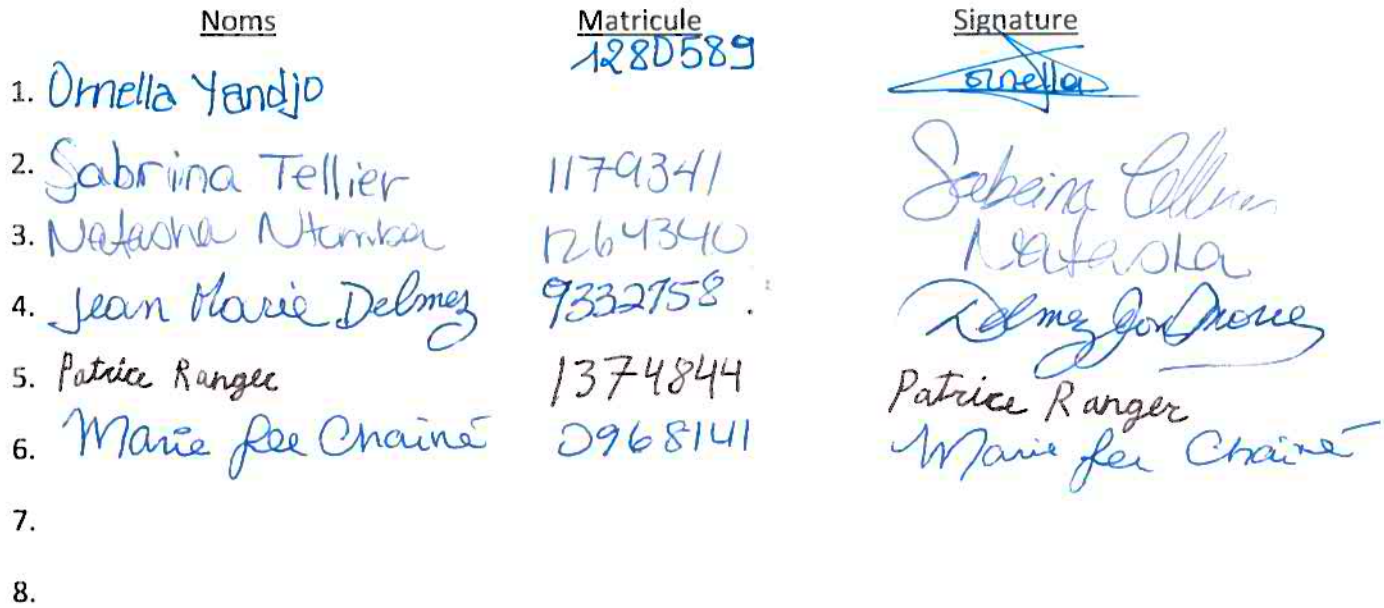 Noms Matricule Signature
1. Ornella Yandjo 1280589 ornella
2. Sabrina Tellier 1179341 Sabrina Tellier
3. Natasha Ntumba 1264340 Natasha
4. Jean Marie Delmez 9332758. Delmez Jean Marie
5. Patrice Ranger 1374844 Patrice Ranger
6. Marie Lee Chainé 0968141 Marie Lee Chainé
7.
8.